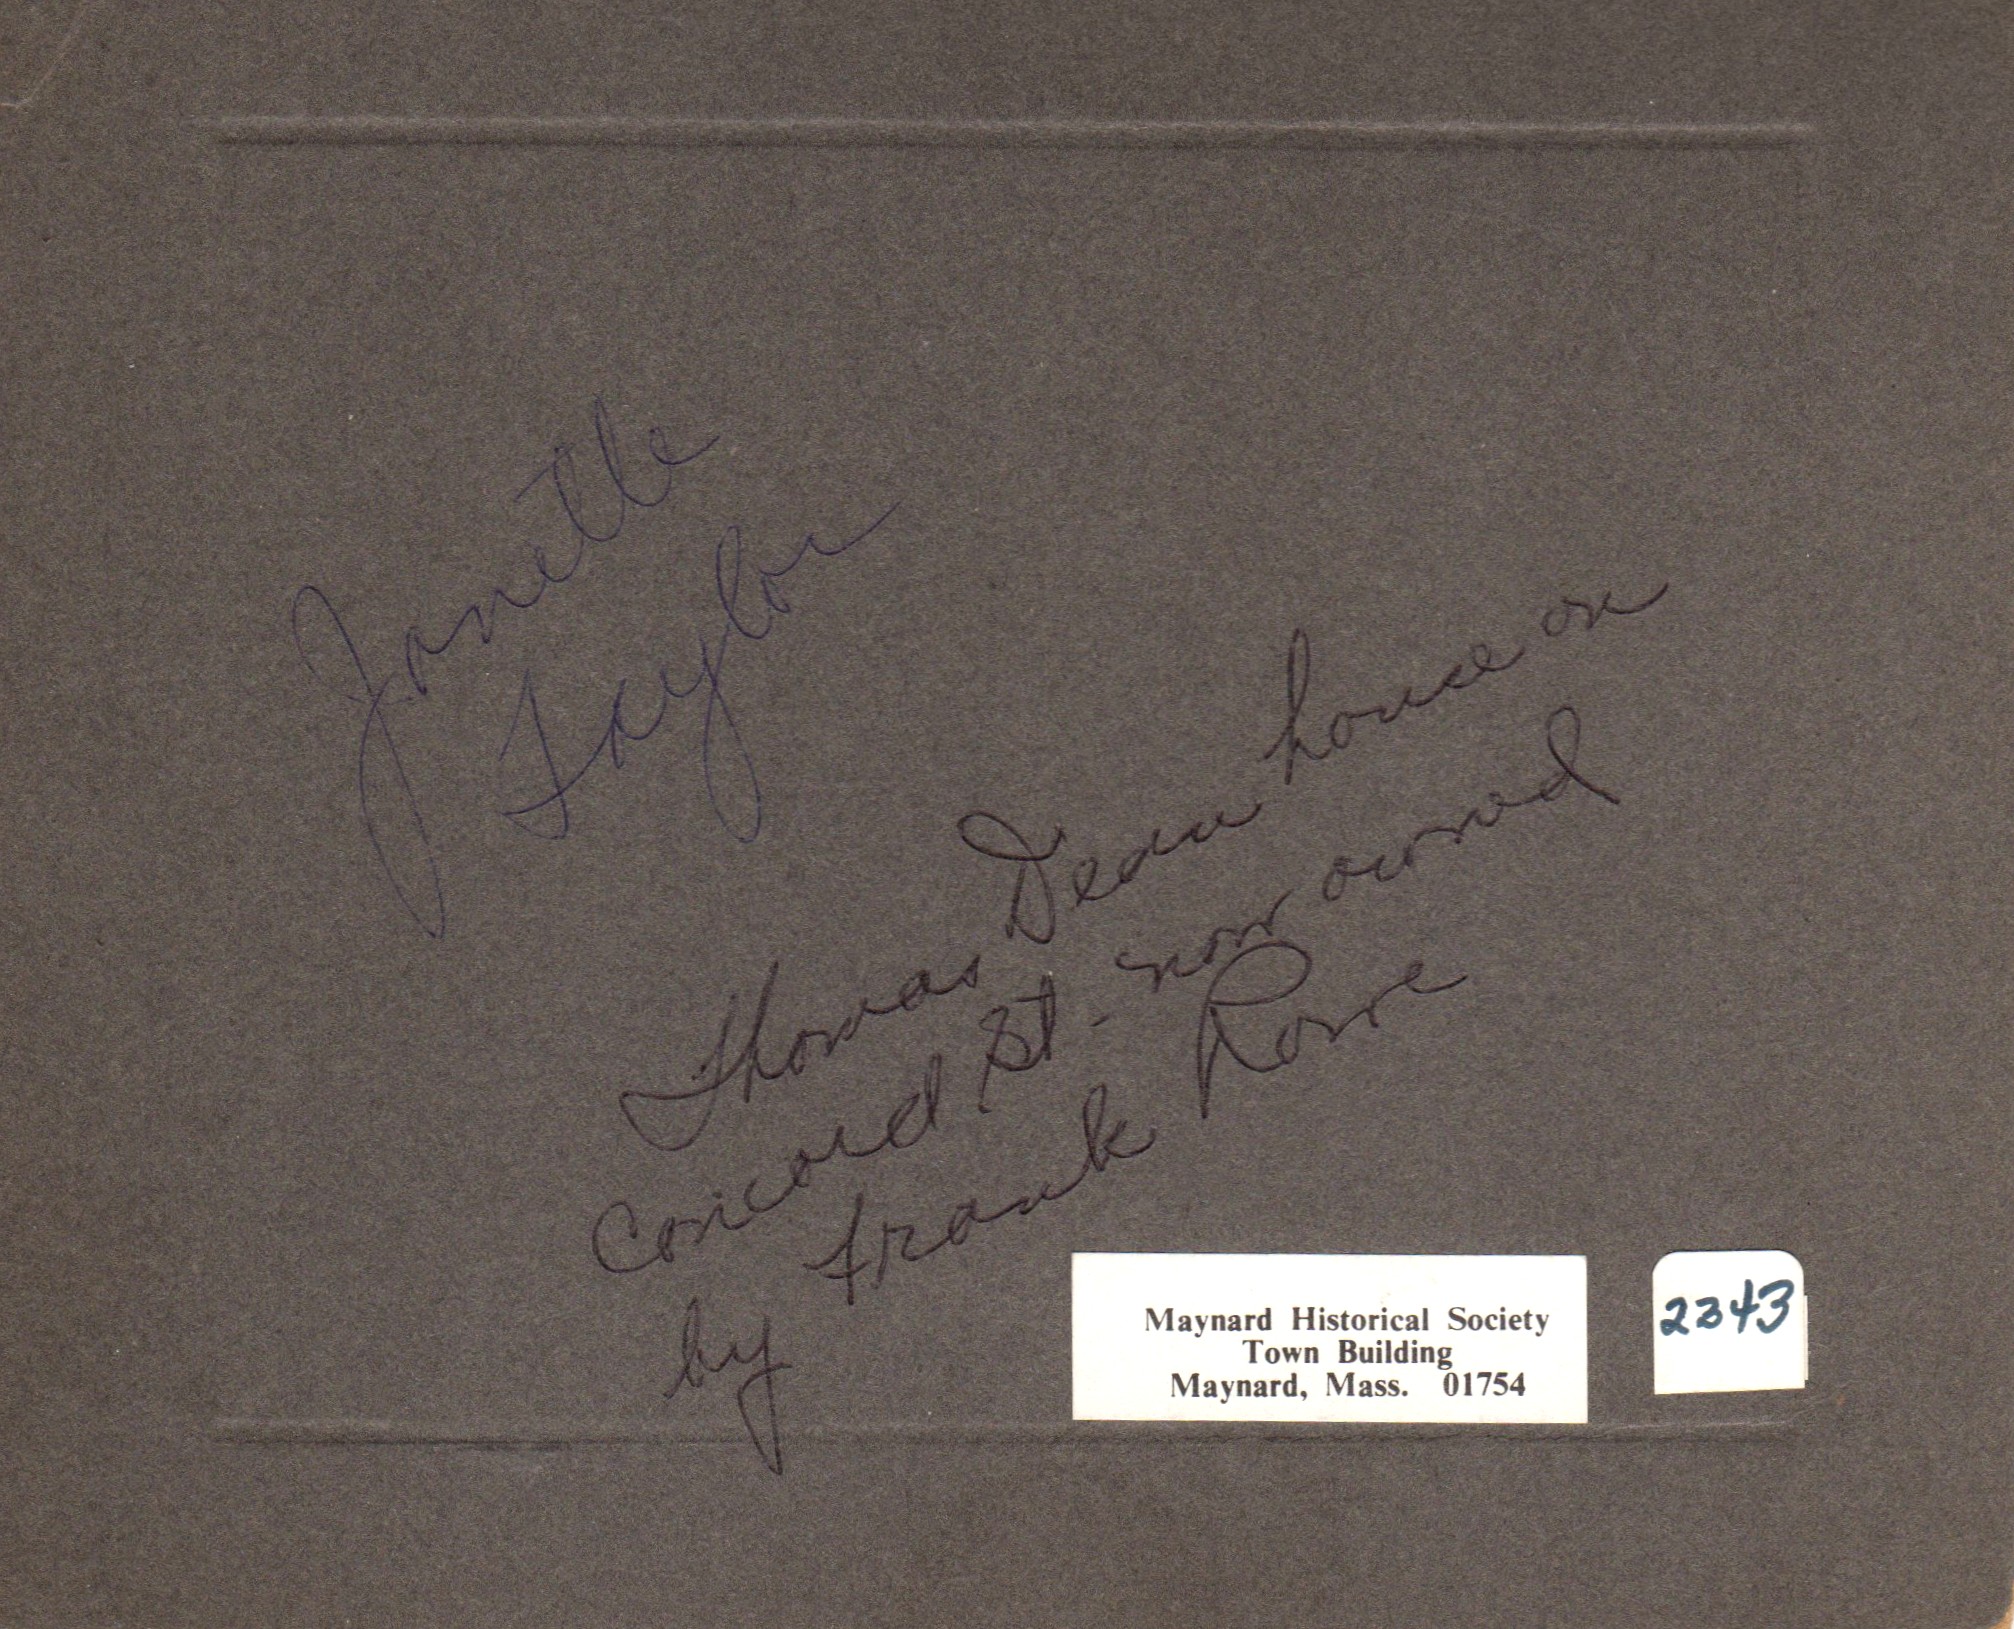 Janette
Taylor
Thomas Dean house on
Concord St - now owned
by Frank Rowe
Maynard Historical Society
Town Building
Maynard, Mass. 01754
2343